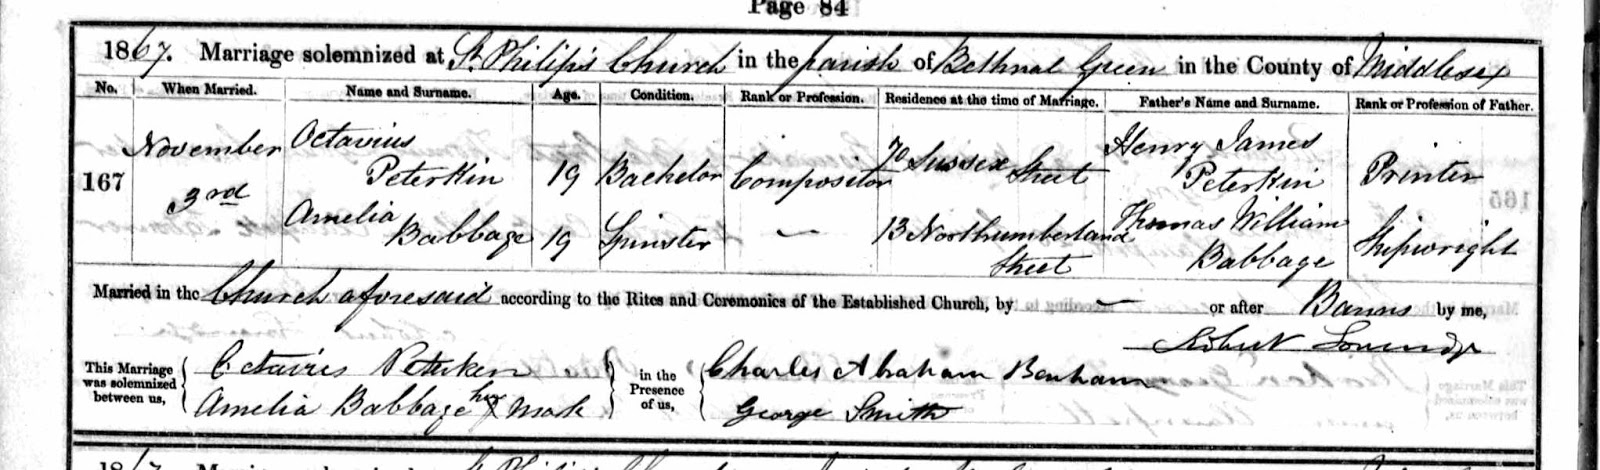 Page 84
1867. Marriage solemnized at St Philip's Church in the parish of Bethnal Green in the County of Middlesex
No. When Married. Name and Surname. Age. Condition. Rank or Profession. Residence at the time of Marriage. Father's Name and Surname. Rank or Profession of Father.
167 November 3rd Octavius Peterkin 19 Bachelor Compositor 70 Sussex Street Henry James Peterkin Printer
Amelia Babbage 19 Spinster — 13 Northumberland Street Thomas William Babbage Shipwright
Married in the Church aforesaid according to the Rites and Ceremonies of the Established Church, by — or after Banns by me,
Robert
This Marriage was solemnized between us, Octavius Peterken in the Presence of us, Charles Abraham Benham
Amelia Babbage her X mark George Smith
1867. St Philip's